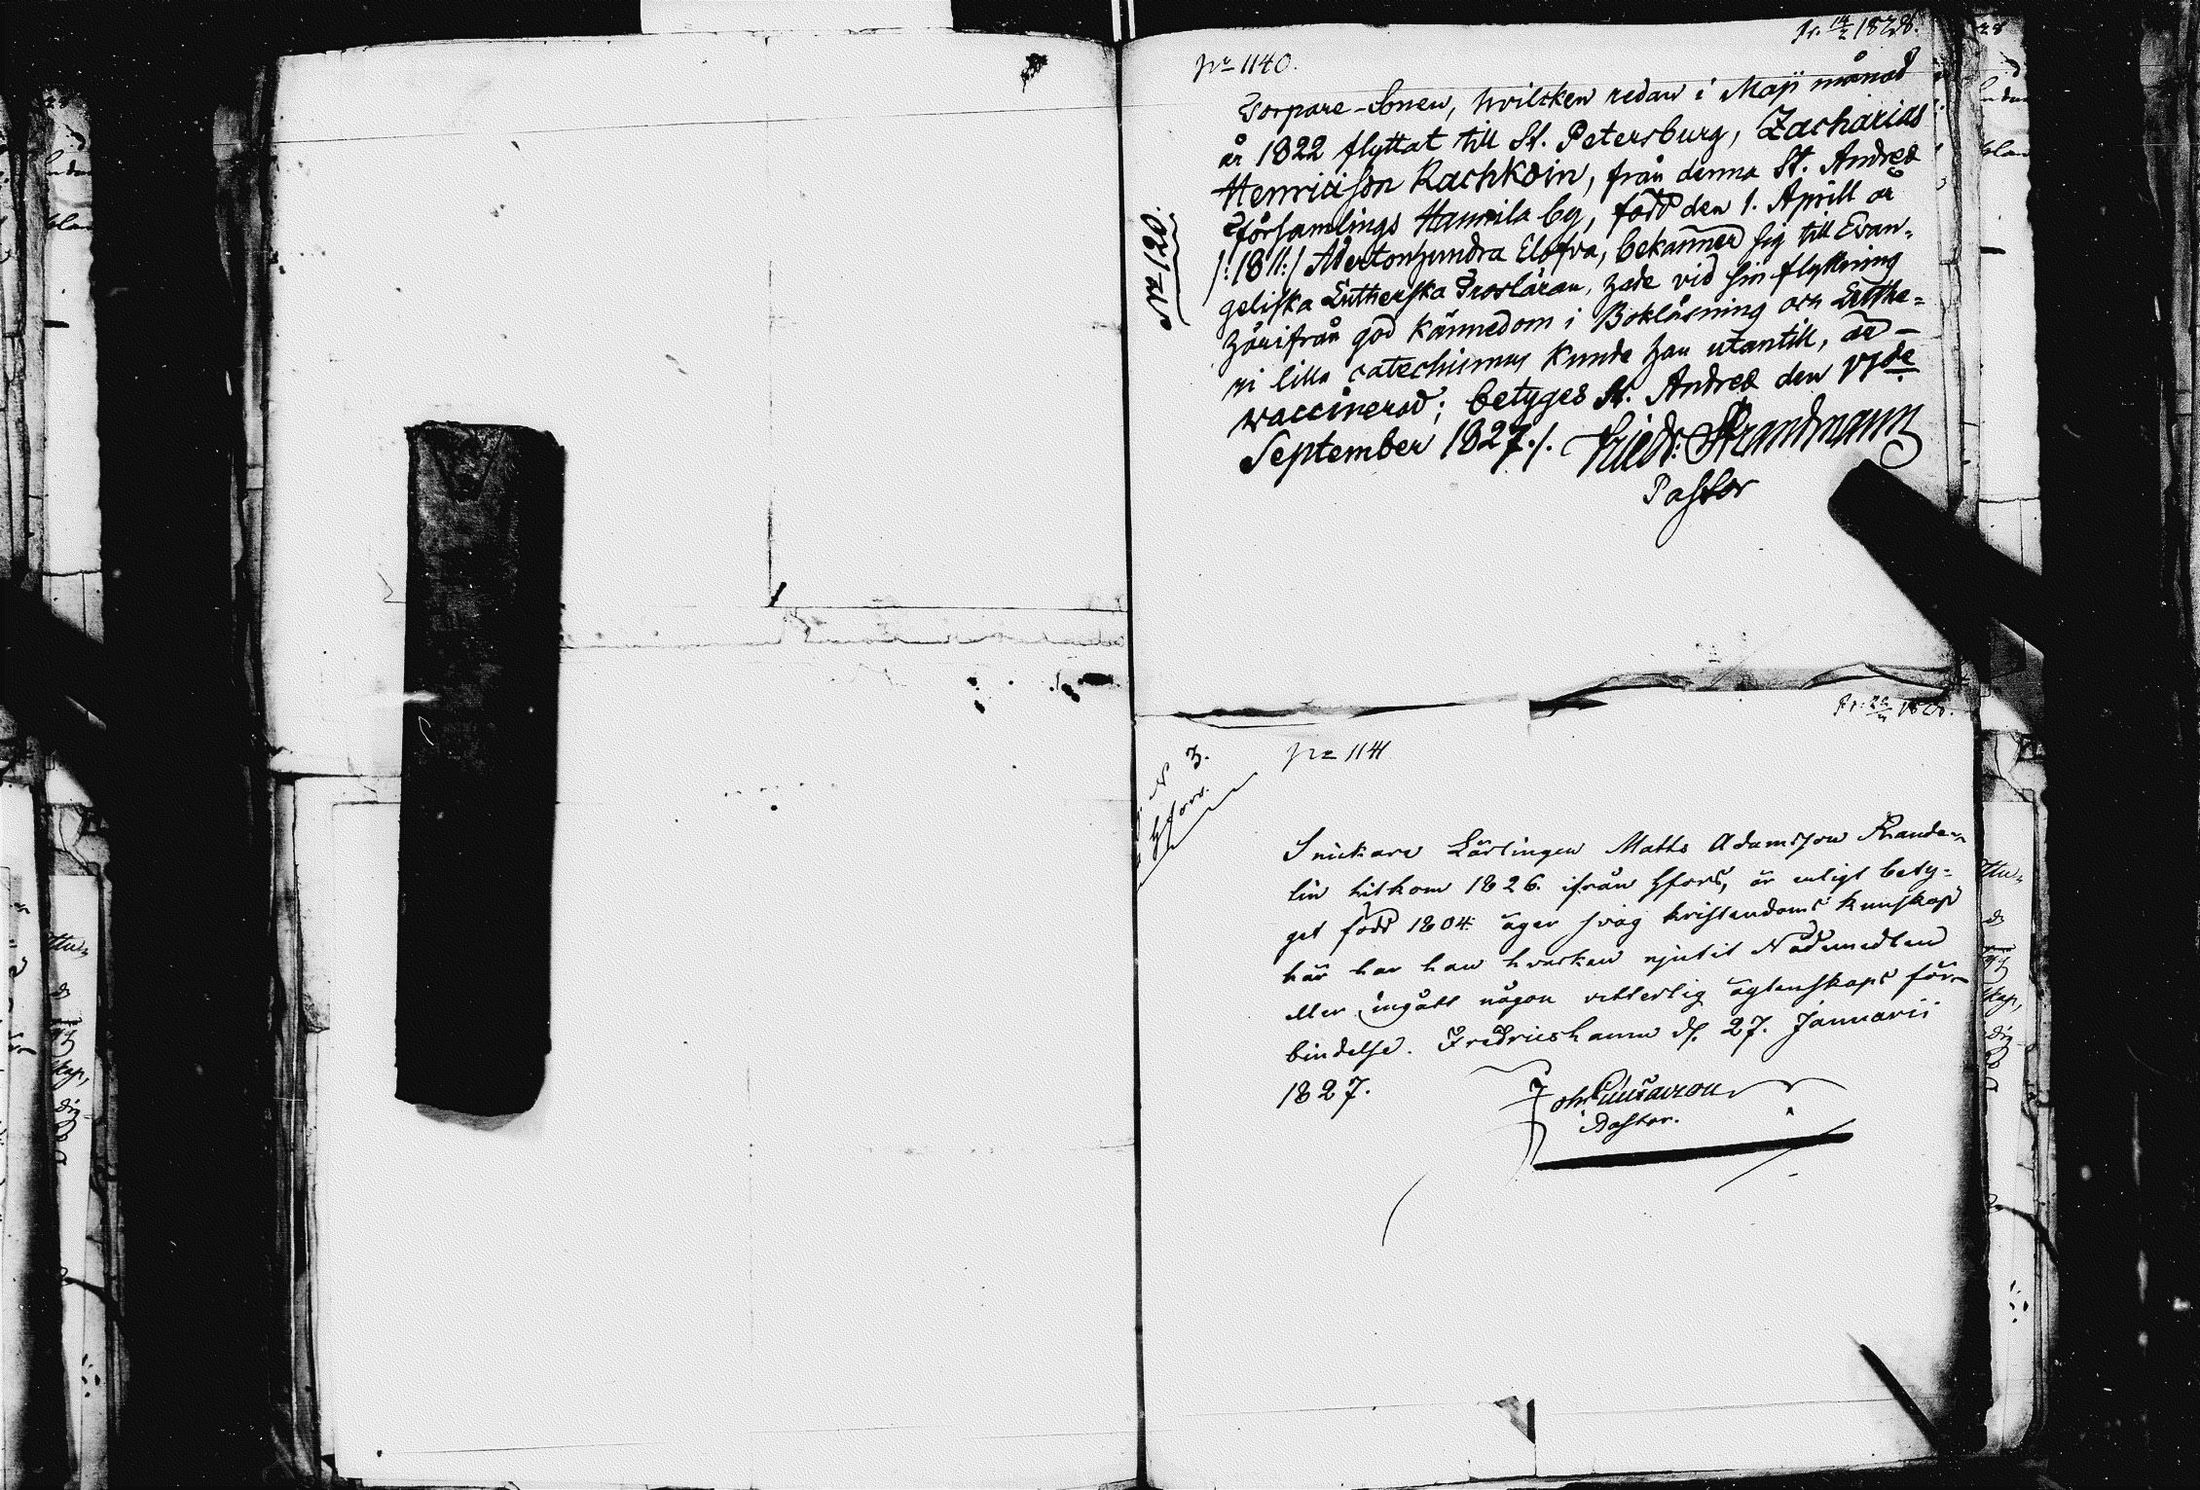 Pr. 14/2 1828.
No 1140.
Torpare-Sonen, hvilcken redan i Maji månad
år 1822 flyttat till St. Petersburg, Zacharias
Henricisson Rachkoin, från denna St. Andreæ
Församlings Hannila by, född den 1. Aprill år
/:1811:/ Adertonhundra Elofva, bekänner sig till Evan-
geliska Lutherska Trosläran, hade vid sin flyttning
härifrån god kännedom i Bokläsning och Luthe-
ri lilla catechismus kunde han utantill, är
vaccinerad; betyges St. Andreæ den
September 1827./. Friedr: Strandmann
Pastor
No 120.
No 1141
N 3.
Hfors.
Snickare Lärlingen Matts Adamsson Rande-
lin hitkom 1826. ifrån Hfors, är enligt bety-
get född 1804. äger svag kristendoms kunskap
här har han hvarken njutit Nådemedlen
eller ingått någon ägtenskaps för-
bindelse. Fredricshamn d. 27. Januarii
1827.
Pastor.